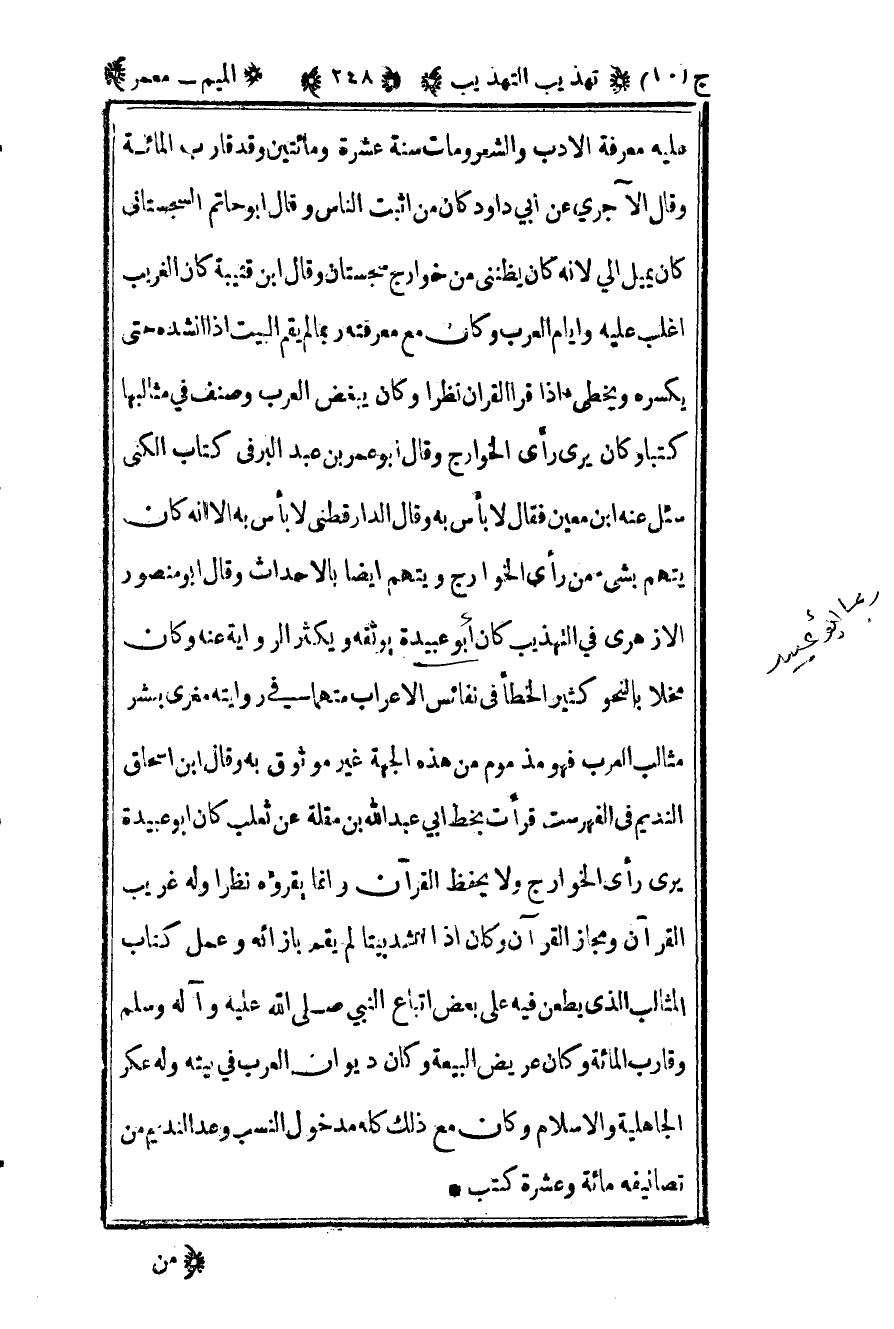 ج (١٠) تهذيب التهذيب ٢٤٨ الميم ـ معمر
عليه معرفة الادب والشعر ومات سنة عشرة ومائتين وقد قارب المائة
وقال الآجري عن أبي داود كان من اثبت الناس وقال ابو حاتم السجستانى
كان يميل الي لانه كان يظننى من خوارج سجستان وقال ابن قتيبة كان الغريب
اغلب عليه وايام العرب وكان مع معرفته ربما لم يقم البيت اذا انشده حتى
يكسره ويخطىء اذا قرا القران نظرا وكان يبغض العرب وصنف في مثالبها
كتبا وكان يرى رأى الخوارج وقال أبو عمر بن عبد البر فى كتاب الكنى
سئل عنه ابن معين فقال لا بأس به وقال الدارقطنى لا بأس به الا انه كان
يتهم بشىء من رأى الخوارج ويتهم ايضا بالاحداث وقال ابو منصور
الازهرى في التهذيب كان أبو عبيدة يوثقه ويكثر الرواية عنه وكان
مخلا بالنحو كثير الخطأ فى نفائس الاعراب متهما في روايته مغرى بنشر
مثالب العرب فهو مذموم من هذه الجهة غير موثوق به وقال ابن اسحاق
النديم فى الفهرست قرأت بخط ابي عبد الله بن مقلة عن ثعلب كان ابو عبيدة
يرى رأى الخوارج ولا يحفظ القرآن وانما يقروه نظرا وله غريب
القرآن ومجاز القرآن وكان اذا انشد بيتا لم يقم بازائه وعمل كتاب
المثالب الذى يطعن فيه على بعض اتباع النبي صلى الله عليه وآله وسلم
وقارب المائة وكان عريض البيعة وكان ديوان العرب في بيته وله عكر
الجاهلية والاسلام وكان مع ذلك كله مدخول النسب وعد النديم من
تصانيفه مائة وعشرة كتب •
من
ربما أبو عبيد